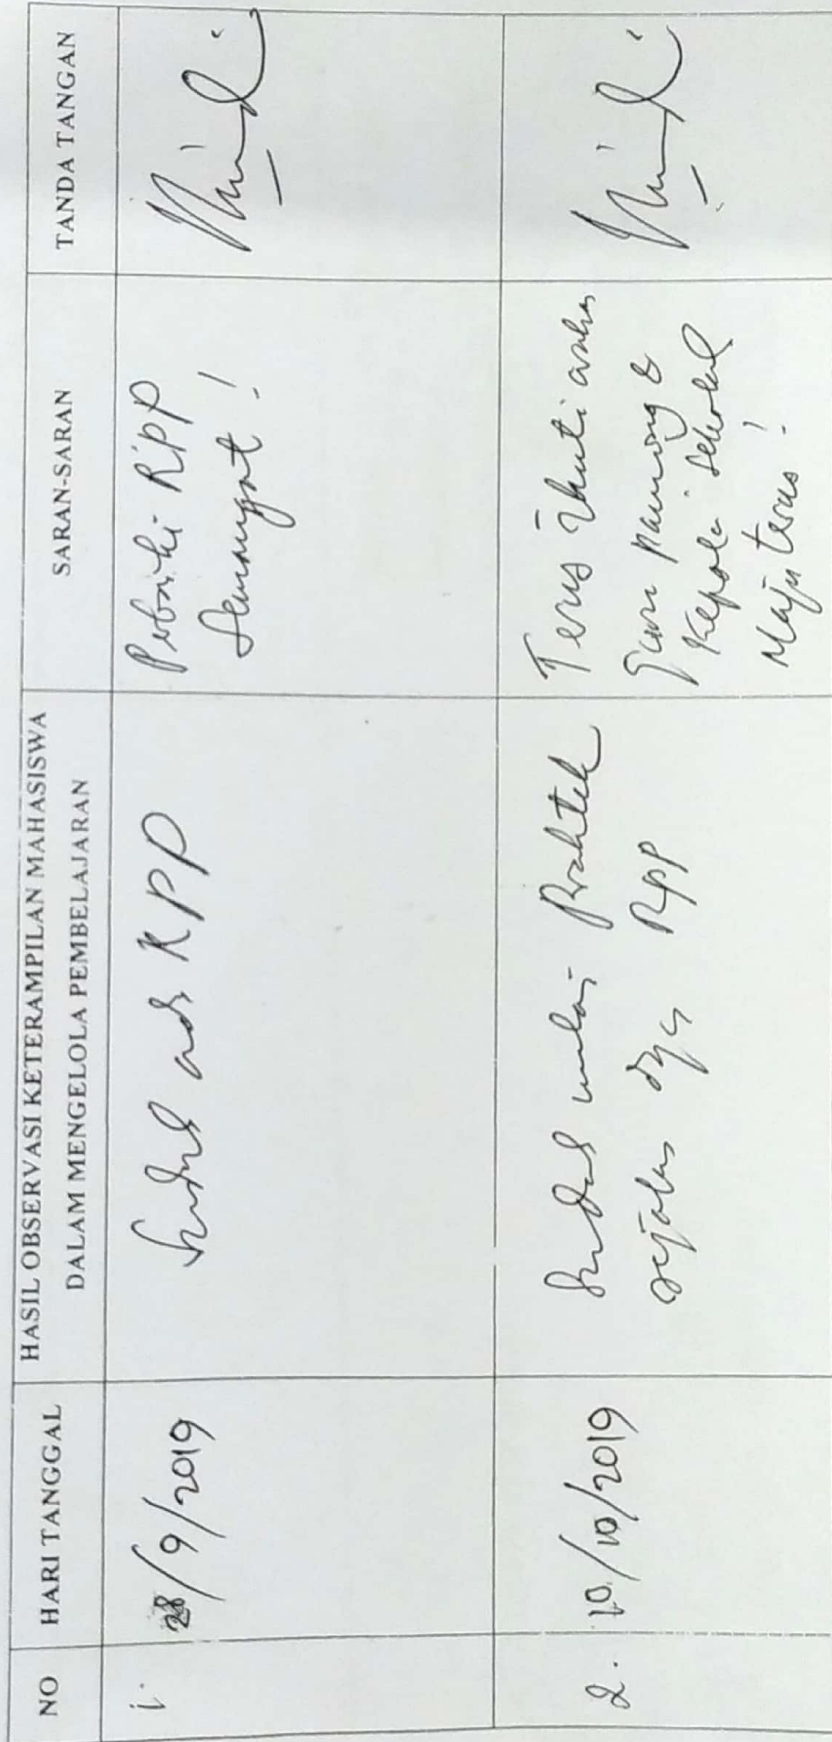 NO
HARI TANGGAL
HASIL OBSERVASI KETERAMPILAN MAHASISWA
DALAM MENGELOLA PEMBELAJARAN
SARAN-SARAN
TANDA TANGAN
1.
28/9/2019
Sudah ada RPP
Perbaiki RPP
Semangat !
2.
10/10/2019
Sudah mulai Praktek
sejalan dgn RPP
Terus ikuti arahan
Guru pamong &
Kepala sekolah
Maju terus !